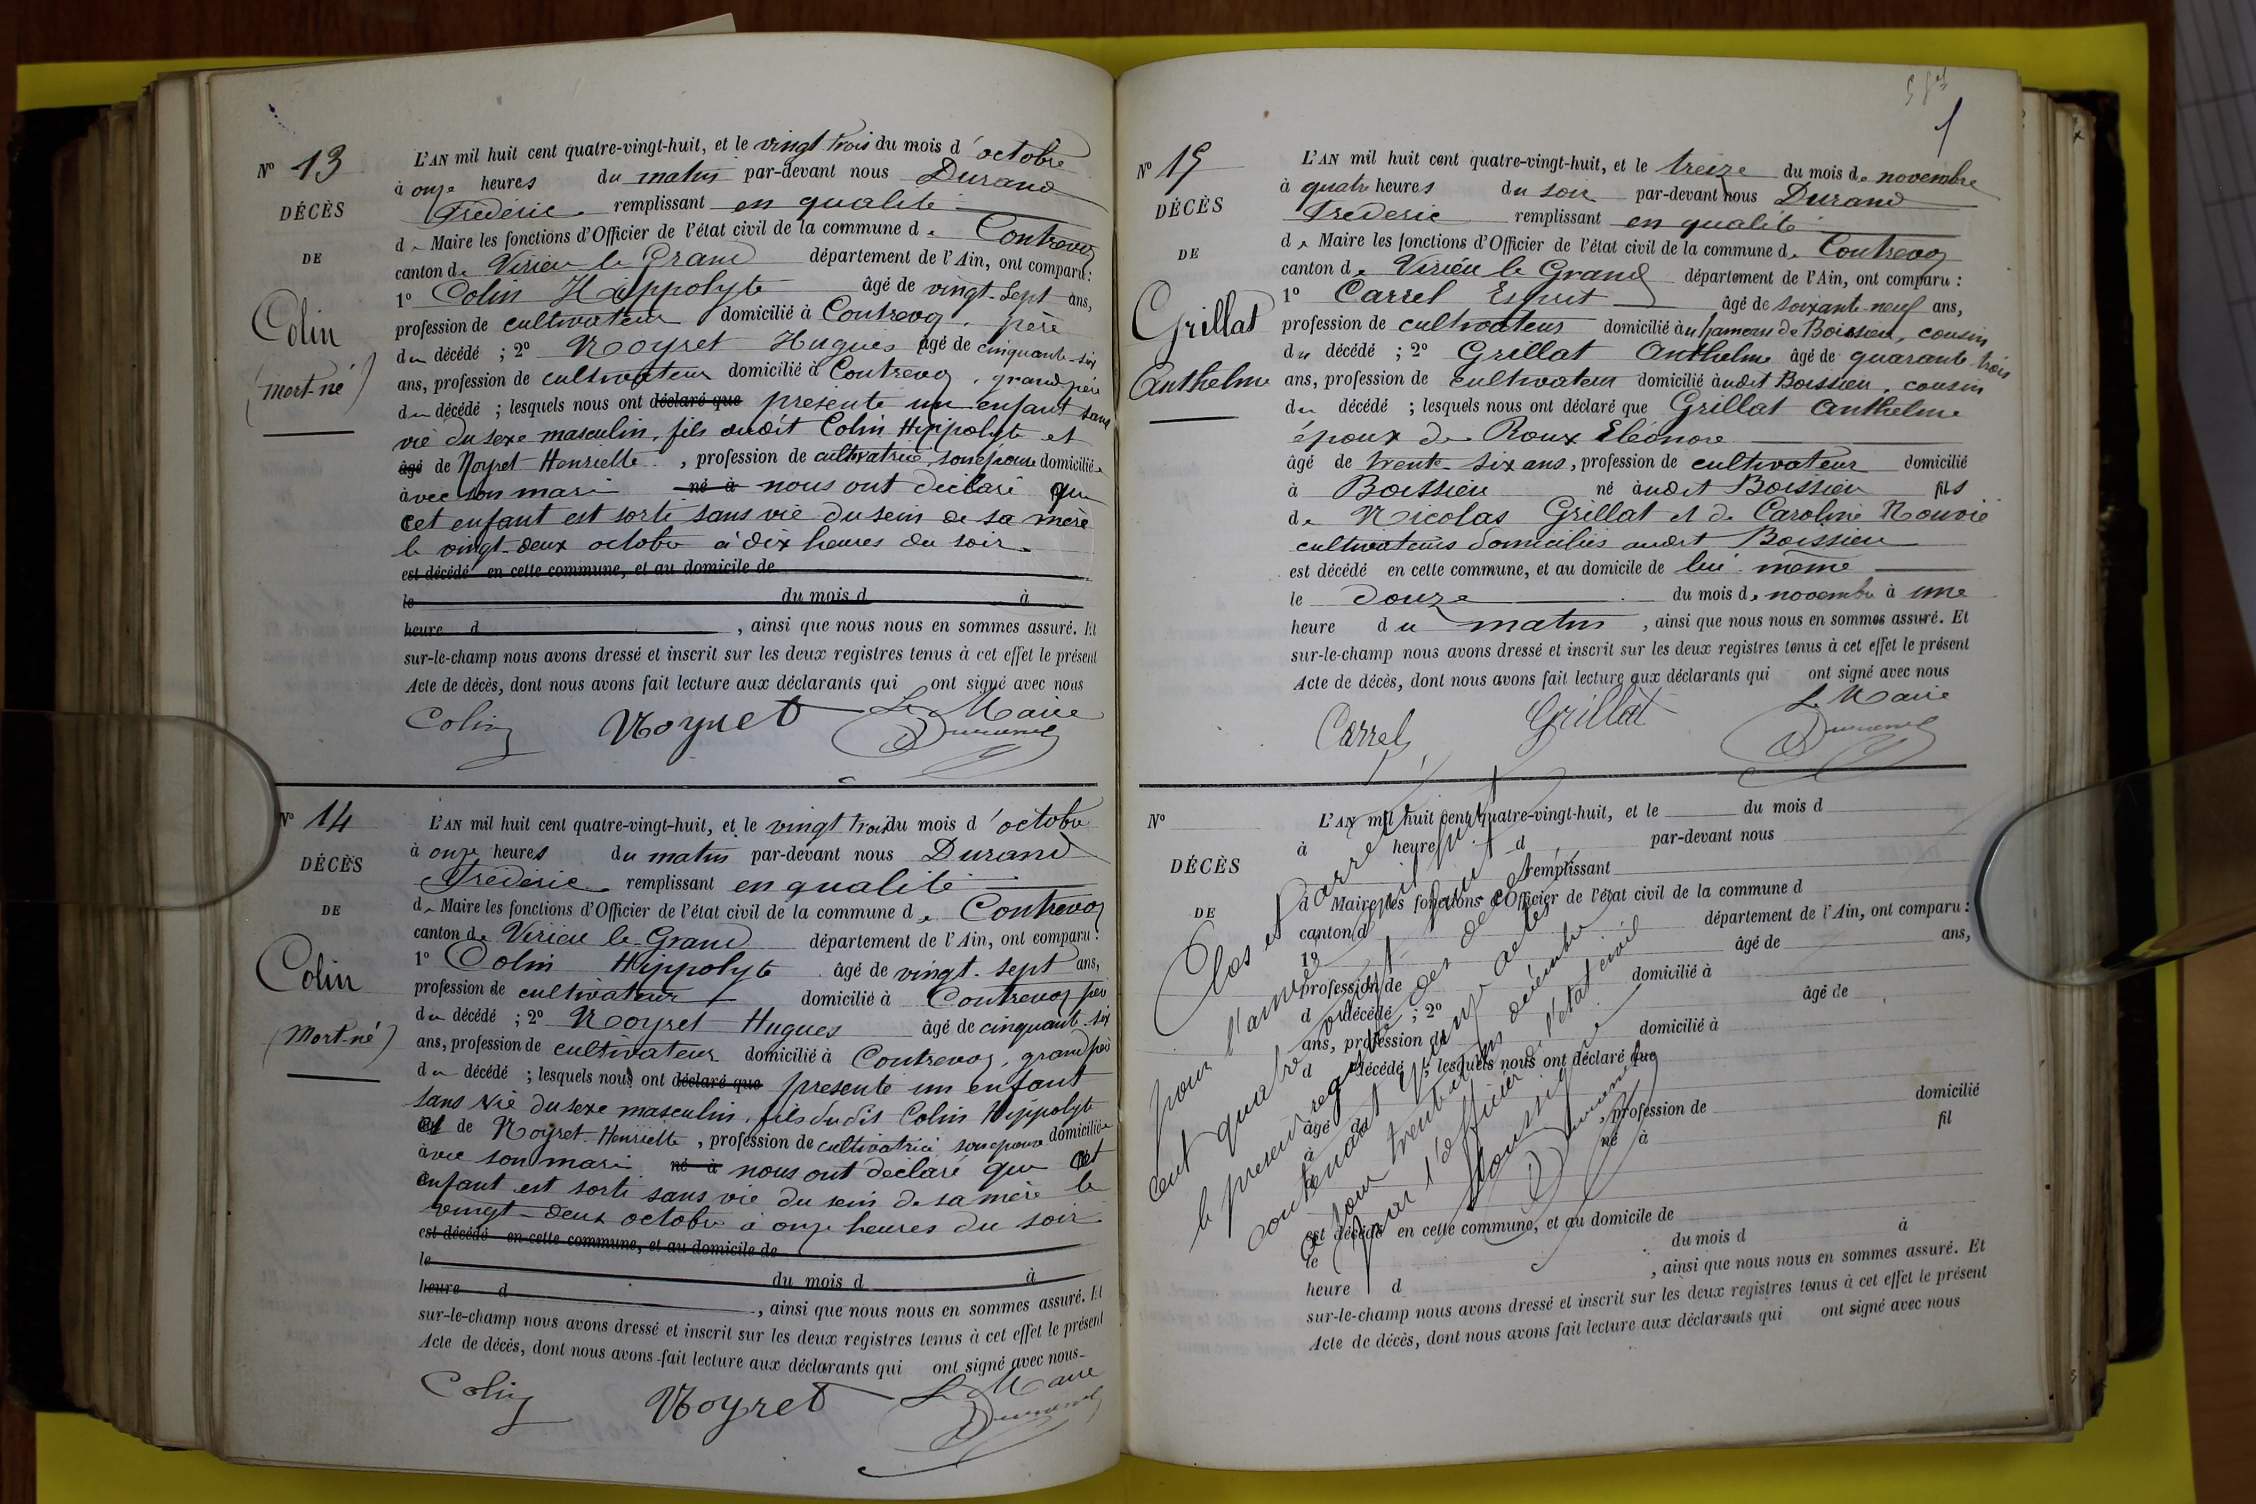 N° 13
DÉCÈS
DE
Colin
(Mort-né)
L'AN mil huit cent quatre-vingt-huit, et le vingt trois du mois d'octobre
à onze heures du matin par-devant nous Durand
Frédéric remplissant en qualité
de Maire les fonctions d'Officier de l'état civil de la commune de Contrevoz
canton de Virieu le Grand département de l'Ain, ont comparu :
1° Colin Hippolyte âgé de vingt-sept ans,
profession de cultivateur domicilié à Contrevoz, père
du décédé ; 2° Noyret Hugues âgé de cinquante-six
ans, profession de cultivateur domicilié à Contrevoz, grand père
du décédé ; lesquels nous ont déclaré que présenté un enfant sans
vie du sexe masculin, fils dudit Colin Hippolyte et
âgé de Noyret Henriette, profession de cultivatrice, son épouse domiciliée
avec son mari né à nous ont déclaré que
cet enfant est sorti sans vie du sein de sa mère
le vingt-deux octobre à dix heures du soir.
est décédé en cette commune, et au domicile de
le du mois d à
heure d , ainsi que nous nous en sommes assuré. Et
sur-le-champ nous avons dressé et inscrit sur les deux registres tenus à cet effet le présent
Acte de décès, dont nous avons fait lecture aux déclarants qui ont signé avec nous
Le Maire
Colin Noyret Durand
N° 14
DÉCÈS
DE
Colin
(Mort-né)
L'AN mil huit cent quatre-vingt-huit, et le vingt trois du mois d'octobre
à onze heures du matin par-devant nous Durand
Frédéric remplissant en qualité
de Maire les fonctions d'Officier de l'état civil de la commune de Contrevoz
canton de Virieu le Grand département de l'Ain, ont comparu :
1° Colin Hippolyte âgé de vingt-sept ans,
profession de cultivateur domicilié à Contrevoz père
du décédé ; 2° Noyret Hugues âgé de cinquante-six
ans, profession de cultivateur domicilié à Contrevoz, grand père
du décédé ; lesquels nous ont déclaré que présenté un enfant
sans vie du sexe masculin, fils dudit Colin Hippolyte
et de Noyret Henriette, profession de cultivatrice son épouse domiciliée
avec son mari né à nous ont déclaré que cet
enfant est sorti sans vie du sein de sa mère le
vingt-deux octobre à onze heures du soir
est décédé en cette commune, et au domicile de
le du mois d à
heure d , ainsi que nous nous en sommes assuré. Et
sur-le-champ nous avons dressé et inscrit sur les deux registres tenus à cet effet le présent
Acte de décès, dont nous avons fait lecture aux déclarants qui ont signé avec nous
Le Maire
Colin Noyret Durand
N° 15
DÉCÈS
DE
Grillat
Anthelme
L'AN mil huit cent quatre-vingt-huit, et le treize du mois de novembre
à quatre heures du soir par-devant nous Durand
Frédéric remplissant en qualité
de Maire les fonctions d'Officier de l'état civil de la commune de Contrevoz
canton de Virieu le Grand département de l'Ain, ont comparu :
1° Carrel Esprit âgé de soixante-neuf ans,
profession de cultivateur domicilié au hameau de Boissieu, cousin
du décédé ; 2° Grillat Anthelme âgé de quarante-trois
ans, profession de cultivateur domicilié audit Boissieu, cousin
du décédé ; lesquels nous ont déclaré que Grillat Anthelme
époux de Roux Eléonore
âgé de trente-six ans, profession de cultivateur domicilié
à Boissieu né audit Boissieu fils
de Nicolas Grillat et de Caroline Nouvié
cultivateurs domiciliés audit Boissieu
est décédé en cette commune, et au domicile de lui-même
le douze du mois de novembre à une
heure du matin, ainsi que nous nous en sommes assuré. Et
sur-le-champ nous avons dressé et inscrit sur les deux registres tenus à cet effet le présent
Acte de décès, dont nous avons fait lecture aux déclarants qui ont signé avec nous
Le Maire
Carrel Grillat Durand
N°
DÉCÈS
DE
L'AN mil huit cent quatre-vingt-huit, et le du mois d
à heure d par-devant nous
remplissant
d Maire les fonctions d'Officier de l'état civil de la commune d
canton d département de l'Ain, ont comparu :
1° âgé de ans,
profession de domicilié à
d décédé ; 2° âgé de
ans, profession de domicilié à
d décédé ; lesquels nous ont déclaré que
âgé de , profession de domicilié
à né à fil
de
est décédé en cette commune, et au domicile de
le du mois d à
heure d , ainsi que nous nous en sommes assuré. Et
sur-le-champ nous avons dressé et inscrit sur les deux registres tenus à cet effet le présent
Acte de décès, dont nous avons fait lecture aux déclarants qui ont signé avec nous
Clos et arrêté
pour l'année mil huit
cent quatre vingt huit
le présent registre des décès
contenant quinze actes
ce jour trente un décembre
par l'officier de l'état civil
soussigné
Durand